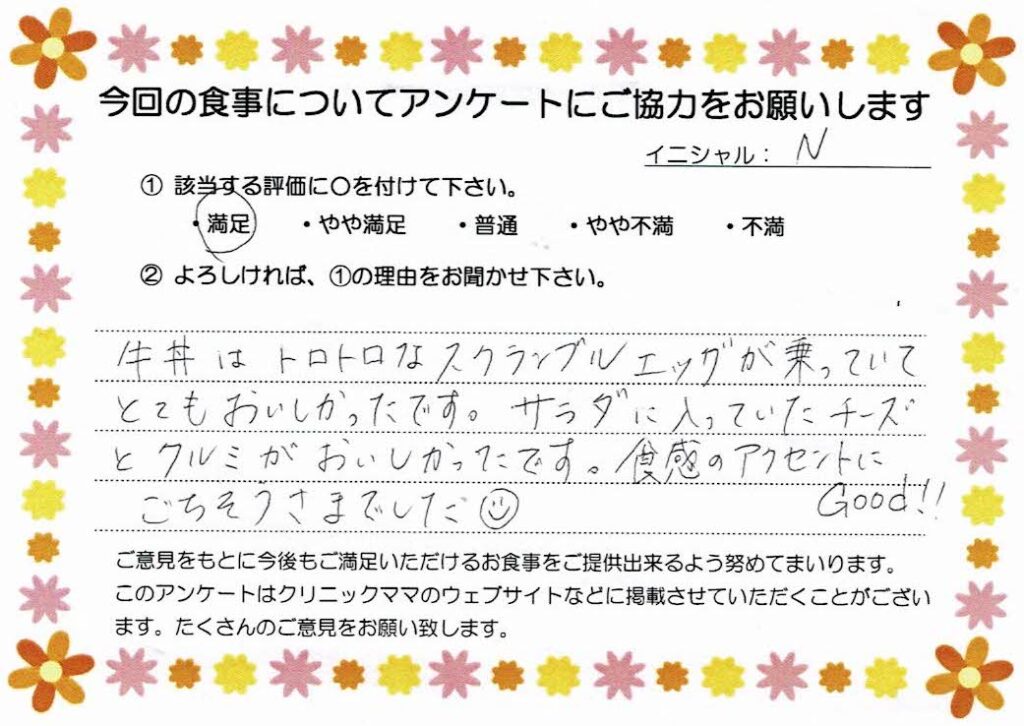 今回の食事についてアンケートにご協力をお願いします
イニシャル： N
① 該当する評価に〇を付けて下さい。
・満足 ・やや満足 ・普通 ・やや不満 ・不満
② よろしければ、①の理由をお聞かせ下さい。
牛丼は トロトロなスクランブルエッグが乗っていて
とてもおいしかったです。サラダに入っていたチーズ
とクルミがおいしかったです。食感のアクセントに
Good!!
ごちそうさまでした
ご意見をもとに今後もご満足いただけるお食事をご提供出来るよう努めてまいります。
このアンケートはクリニックママのウェブサイトなどに掲載させていただくことがござい
ます。たくさんのご意見をお願い致します。